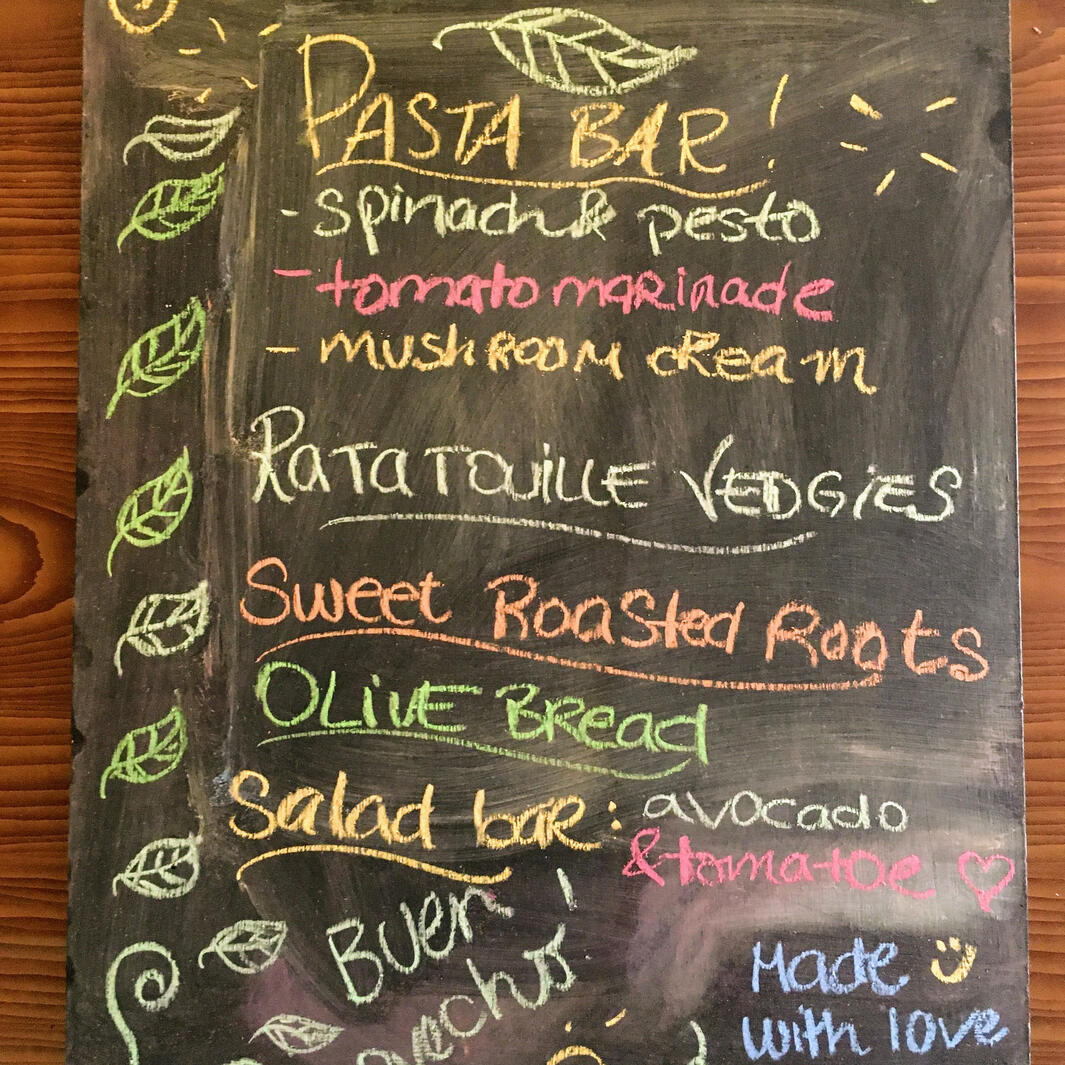 PASTA BAR!
- spinach & pesto
- tomato marinade
- mushroom cream
RATATOUILLE VEDGIES
Sweet Roasted Roots
OLIVE BREad
Salad bar: avocado
& tomatoe
Buen !
Made
with love